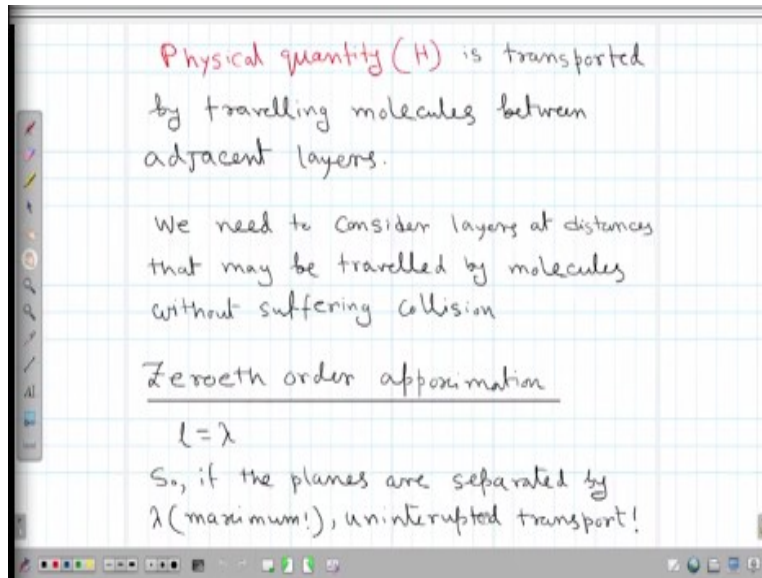 Physical quantity (H) is transported
by travelling molecules between
adjacent layers.
We need to consider layers at distances
that may be travelled by molecules
without suffering collision
Zeroeth order appoximation
l = λ
So, if the planes are separated by
λ (maximum!), uninterupted transport!